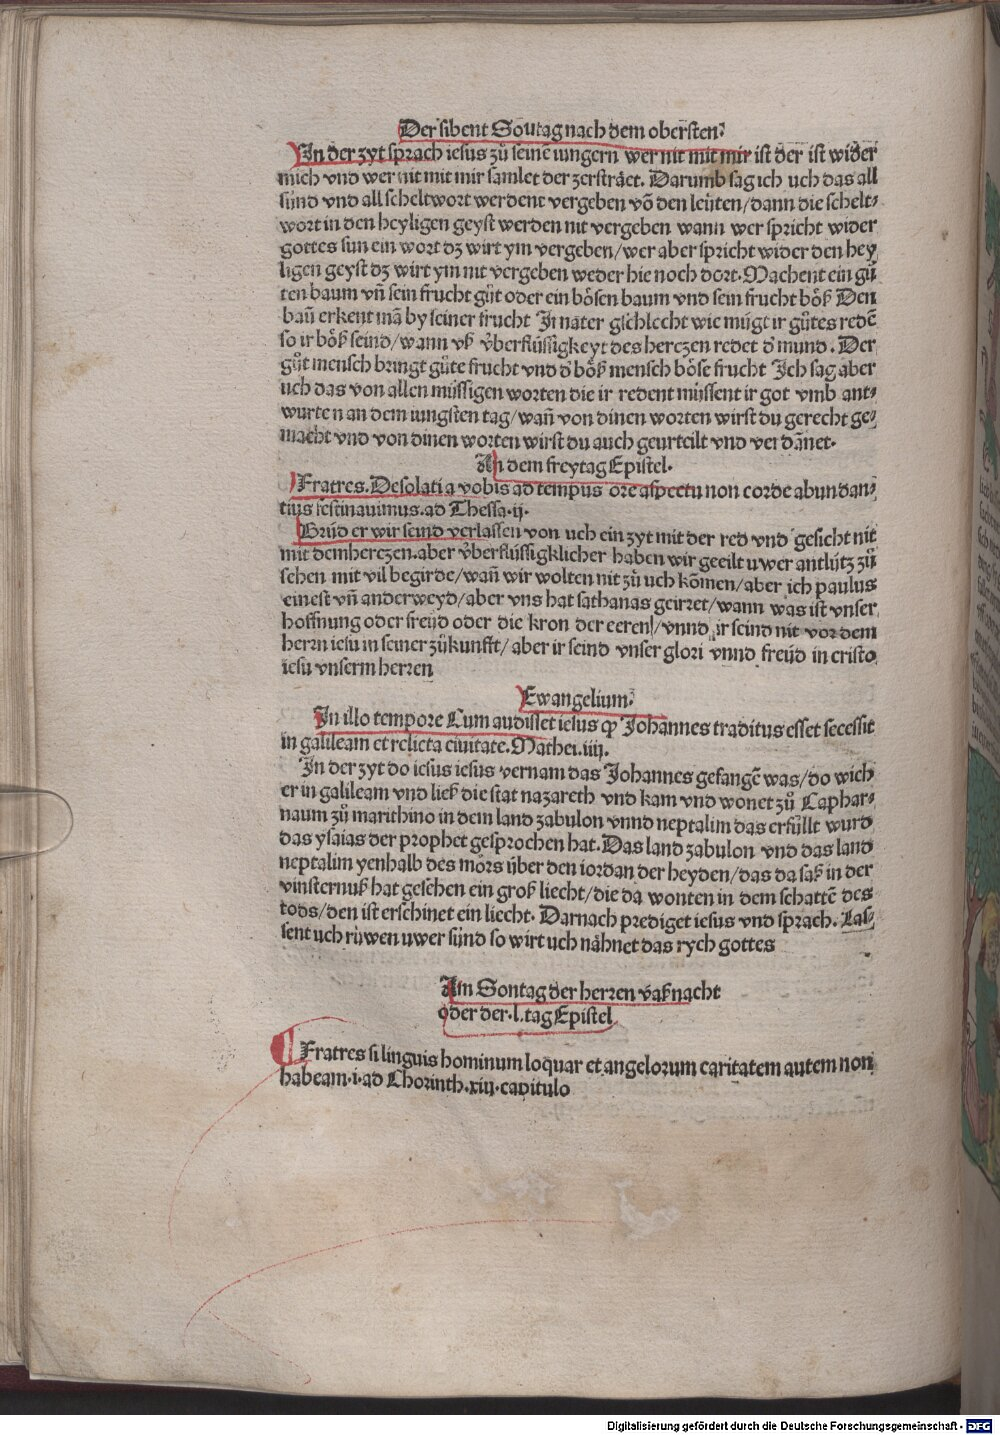 Der sibent Soutag nach dem obersten.
In der zyt sprach iesus zů seinē iungern wer nit mit mir ist der ist wider
mich vnd wer nit mit mir samlet der zersträet. Darumb sag ich uch das all
sünd vnd all scheltwort werdent vergeben võ den leüten/dann die schelt-
wort in den heyligen geyst werden nit vergeben wann wer spricht wider
gottes sun ein wort dz wirt ym vergeben/wer aber spricht wider den hey
ligen geyst dz wirt ym nit vergeben weder hie noch dort. Machent ein gů
ten baum vñ sein frucht gůt oder ein bösen baum vnd sein frucht böß Den
baū erkent mā by seiner frucht In nater gschlecht wie mügt ir gůtes redē
so ir böß seind/wann vß v̈berflüssigkeyt des herczen redet d' mund. Der
gůt mensch bringt gůte frucht vnd d' böß mensch böse frucht Ich sag aber
uch das von allen müssigen worten die ir redent müssent ir got vmb ant-
wurten an dem iungsten tag/wañ von dinen worten wirst du gerecht ge-
macht vnd von dinen worten wirst du auch geurteilt vnd verdānet.
An dem freytag Epistel.
Fratres. Desolati a vobis ad tempus ore aspectu non corde abundan-
tius festinauimus. ad Thessa. ij.
Brüder wir seind verlassen von uch ein zyt mit der red vnd gesicht nit
mit dem herczen. aber v̈berflüssigklicher haben wir geeilt uwer antlütz zů
sehen mit vil begirde/wañ wir wolten nit zů uch kōmen/aber ich paulus
einest vñ anderweyd/aber vns hat sathanas geirret/wann was ist vnser
hoffnung oder freüd oder die kron der eeren/vnnd ir seind nit vor dem
herrn iesu in seiner zůkunfft/aber ir seind vnser glori vnnd freüd in cristo
iesu vnserm herren
Ewangelium.
In illo tempore Cum audisset iesus ꝙ Johannes traditus esset secessit
in galileam et relicta ciuitate. Mathei. iiij.
In der zyt do iesus iesus vernam das Johannes gefangē was/do wich
er in galileam vnd ließ die stat nazareth vnd kam vnd wonet zů Caphar-
naum zů marithino in dem land zabulon vnnd neptalim das erfüllt wurd
das ysaias der prophet gesprochen hat. Das land zabulon vnd das land
neptalim yenhalb des mörs über den iordan der heyden/das da saß in der
vinsternuß hat gesehen ein groß liecht/die da wonten in dem schattē des
tods/den ist erschinet ein liecht. Darnach prediget iesus vnd sprach. Las-
sent uch rüwen uwer sünd so wirt uch nähnet das rych gottes
Am Sontag der herren vaßnacht
oder der .l. tag Epistel
Fratres si linguis hominum loquar et angelorum caritatem autem non
habeam. i. ad Chorinth. xiij. capitulo
Digitalisierung gefördert durch die Deutsche Forschungsgemeinschaft - DFG